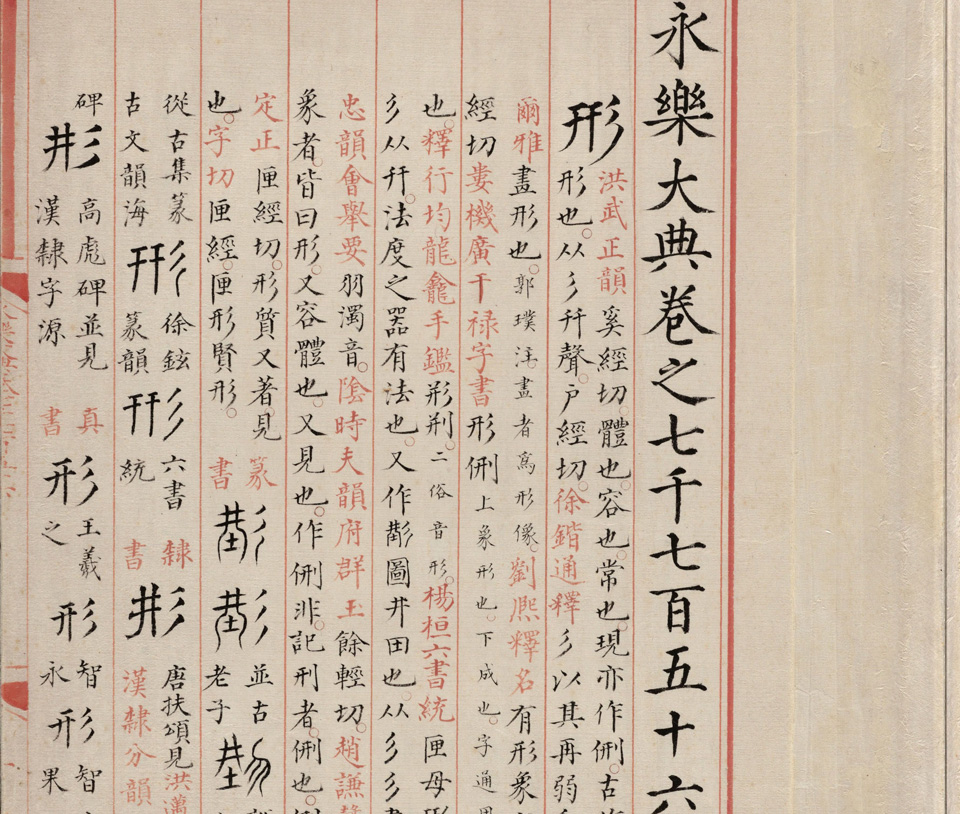 永樂大典卷之七千七百五十六
形
洪武正韻奚經切。體也。容也。常也。現亦作侀。古
形也。从彡幵聲。戶經切。徐鍇通釋彡以其再弱
爾雅畫形也。郭璞注。畫者為形像。劉熈釋名有形象
經切婁機廣干禄字書形侀上象形也。下成也。字通用
也。釋行均龍龕手鑑形刑。二俗音形。楊桓六書統匣母形
彡从幵。法度之器有法也。又作㓝圖井田也。从彡
忠韻會舉要羽濁音。陰時夫韻府群玉餘輕切。趙謙聲
象者。皆曰形。又容體也。又見也。作侀非。記刑者。侀也。侀
定正匣經切。形質又著。見
也。字切匣經。匣形賢形。
篆
書
並古
老子
從古集篆
古文韻海
形
徐鉉
篆韻
形
六書
統
隸
書
形
唐扶頌見洪邁
漢隸分韻
碑
形
高彪碑並見
漢隸字源
真
書
形
王羲
之
形
智
永
形
智
果